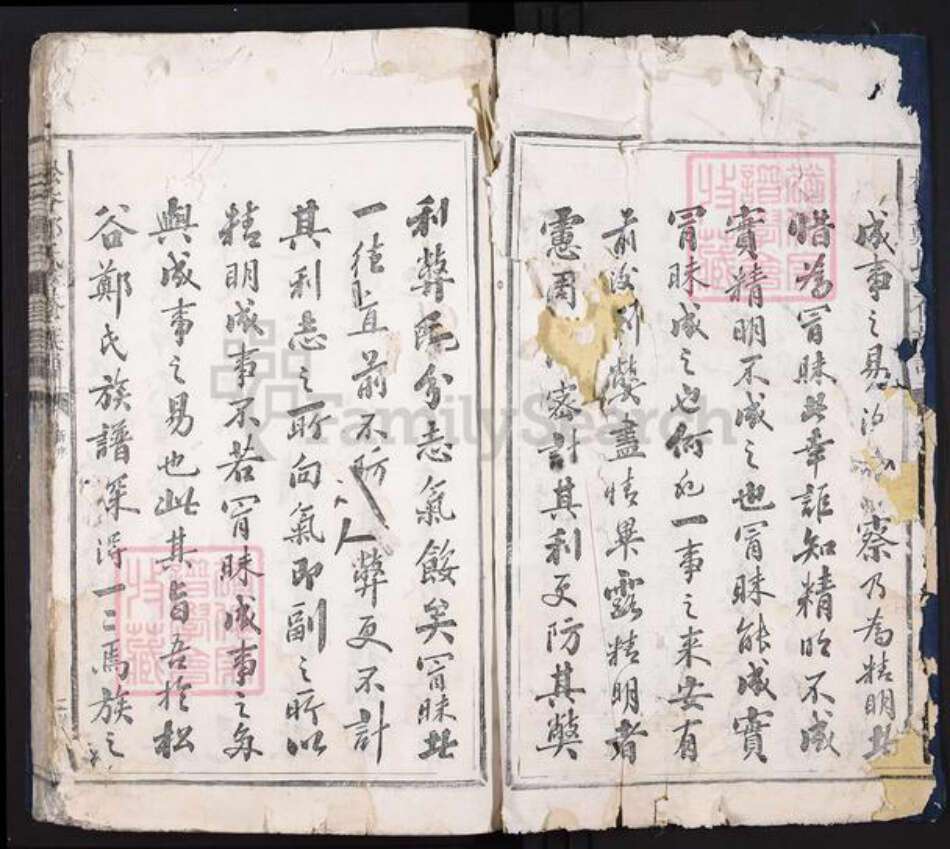 成事之易 察乃為精明者
惜為冥昧者幸詎知精明不成
實精明不成之也冥昧能成實
冥昧成之也何也一事之來安有
前後利弊盡情畢露精明者
慮周 密計其利更防其弊
利弊既分志氣餒矣冥昧者
一往直前不防人弊更不計
其利志之所向氣即副之所以
精明成事不若冥昧成事之多
與成事之易也此其旨吾於松
谷鄭氏族譜深得一二焉族之
FamilySearch